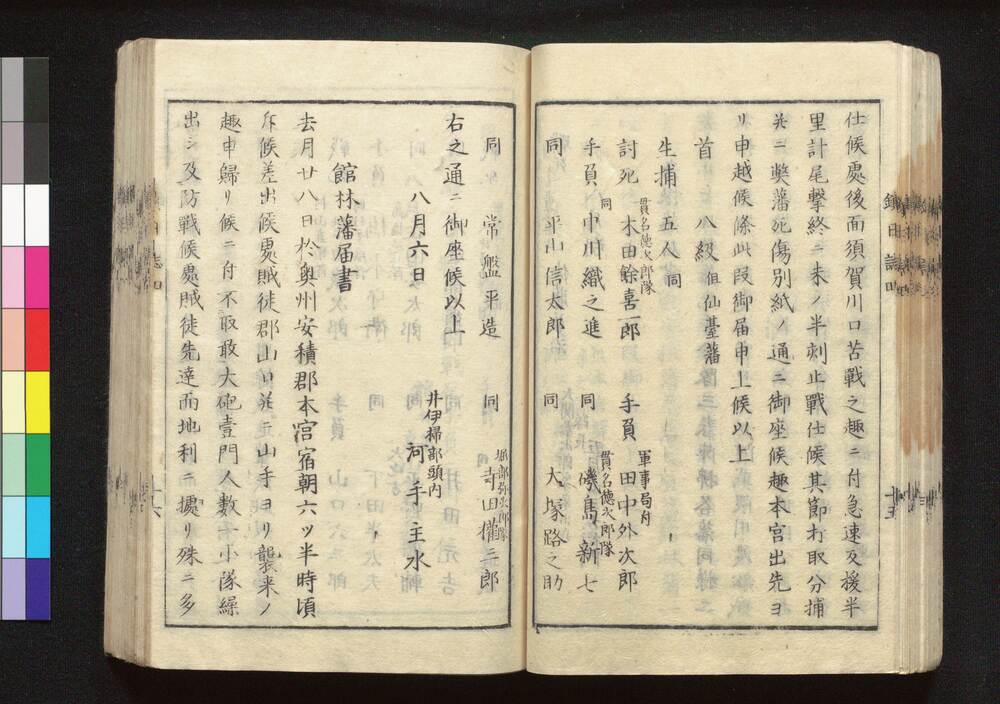 仕候處後面須賀川口苦戰之趣ニ付急速及援半
里計尾撃終ニ未ノ半刻止戰仕候其節打取分捕
并ニ弊藩死傷別紙ノ通ニ御座候趣本宮出先ヨ
リ申越候條此段御届申上候以上
首 八級 但仙臺藩
生捕 五人 同
貫名德次郎隊 軍事局付
討死 木田餘喜一郎 手負 田中外次郎
同 貫名德次郎隊
手負 中川織之進 同 磯島新七
同 平山信太郎 同 大塚路之助
堀部弥次郎隊
同 常盤平造 同 寺田權三郎
右之通ニ御座候以上
井伊掃部頭内
八月六日 河手主水
館林藩届書
去月廿八日於奥州安積郡本宮宿朝六ツ半時頃
斥候差出候處賊徒郡山口并ニ山手ヨリ襲来ノ
趣申歸リ候ニ付不取敢大砲壹門人數一小隊繰
出シ及防戰候處賊徒先達而地利ニ據リ殊ニ多